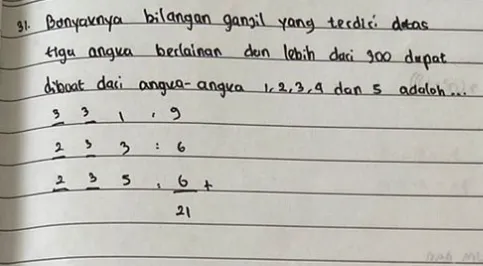 31. Banyaknya bilangan ganjil yang terdiri datas
tiga angka berlainan dan lebih dari 300 dapat
dibaat dari angka-angka 1, 2, 3, 4 dan 5 adalah...
3 3 1 : 9
2 3 3 : 6
2 3 5 : 6 +
21